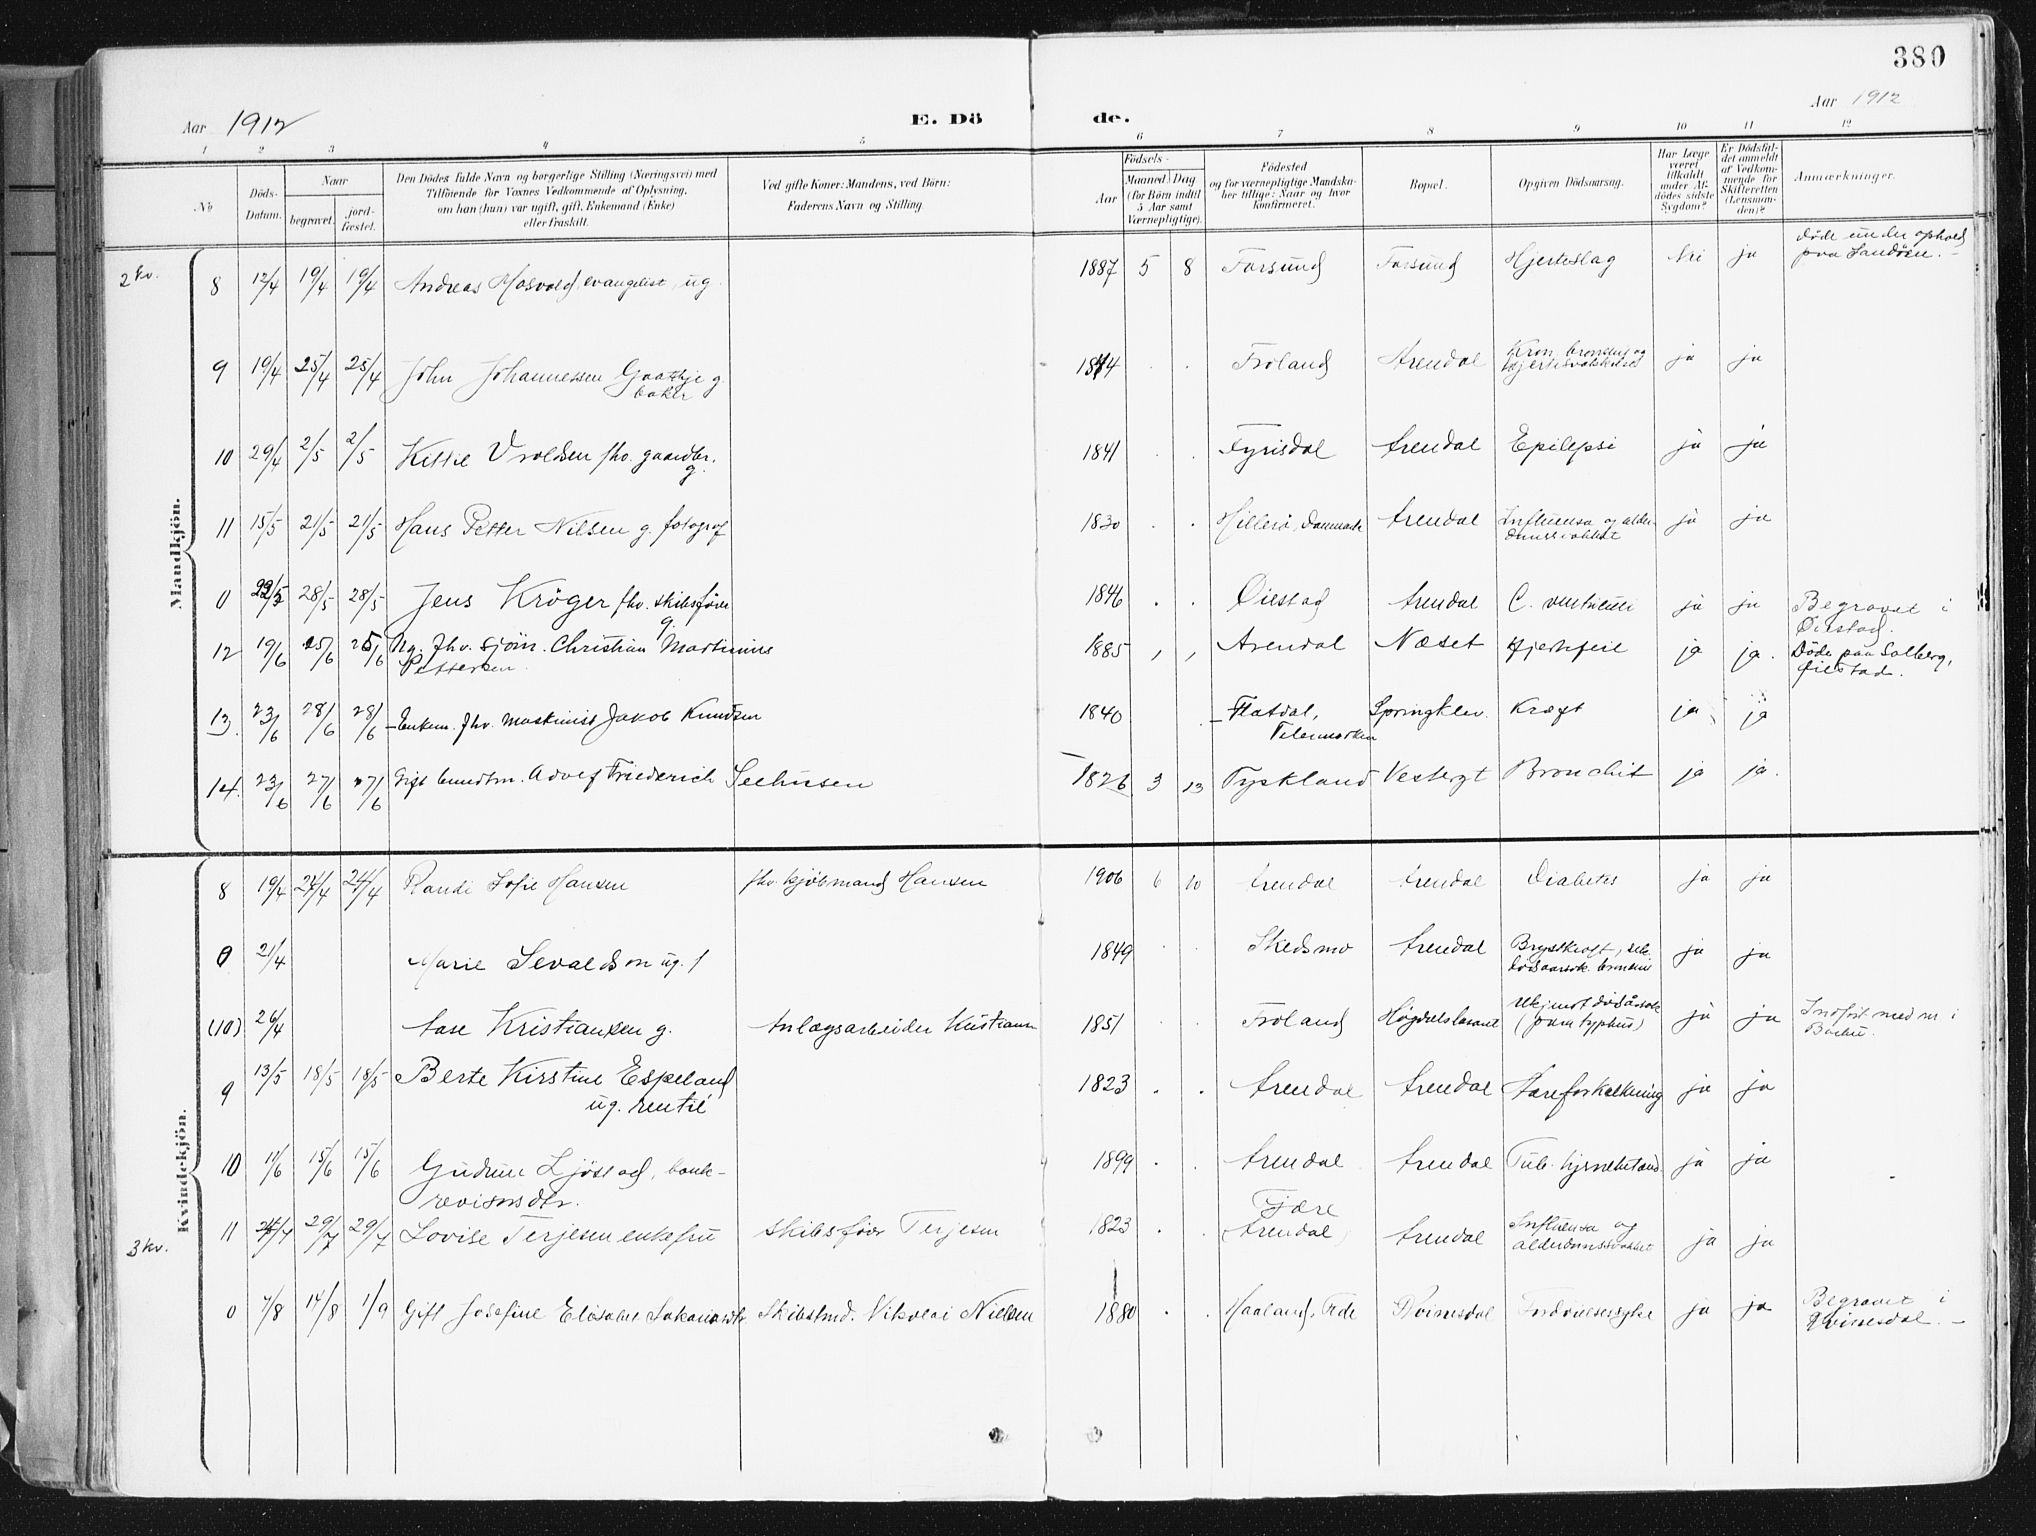 380
Aar 1912
E. Dö
de.
Aar 1912
1 2 3 4 5 6 7 8 9 10 11 12
No
Döds-
Datum.
Naar
begravet.
jord-
fæstet.
Den Dödes fulde Navn og borgerlige Stilling (Næringsvei) med
Tilföiende for Voxnes Vedkommende af Oplysning,
om han (hun) var ugift, gift, Enkemand (Enke)
eller fraskilt.
Ved gifte Koner: Mandens, ved Börn:
Faderens Navn og Stilling
Födsels-
Aar
Maaned Dag
(for Börn indtil
5 Aar samt
Værnepligtige).
Födested
og for værnepligtige Mandska-
ber tillige: Naar og hvor
konfirmeret.
Bopæl.
Opgiven Dödsaarsag.
Har Læge
været
tilkaldt
under Af-
dödes sidste
Sygdom?
Er Dödsfal-
det anmeldt
af Vedkom-
mende for
Skifteretten
(Lensman-
den)?
Anmærkninger.
2 kv.
Mandkjön.
8 12/4 19/4 19/4 Andreas Mosvold, evangelist, ug. 1887 5 8 Farsund Farsund Hjerteslag Nei ja Döde under ophold
paa Sandöen.
9 19/4 25/4 25/4 John Johannessen g.
baker 1844 . . Froland Arendal Kron. bronchit og
ja ja
10 29/4 2/5 2/5 Kittil Vroldsen fhv. gaardbr.
g. 1841 . . Fyrisdal Arendal Epilepsi ja ja
11 15/5 21/5 21/5 Hans Petter Nilsen g. fotograf 1830 . . Hilleró, Danmark Arendal Influensa og alder-
ja ja
0 28/5 28/5 Jens Kröger fhv. skibsförer
g. 1846 . . Öiestad Arendal C. ventriculi ja ja Begravet i
Öiestad.
12 19/6 25/6 25/6 Ug. fhv. sjöm. Christian Martinius
Pettersen 1885 , , Arendal Næset Hjertefeil ja ja. Döde paa Solberg,
Öiestad.
13. 23/6 28/6 28/6 Enkem. fhv. maskinist Jakob Knudsen 1840 . Flatdal,
Telemarken Springklev. Kræft ja ja
14. 23/6 27/6 27/6 Gift Adolf Friederich Seehusen 1826 3 13 Tyskland Vestergt Bronchit ja ja.
Kvindekjön.
8 19/4 24/4 24/4 Randi Sofie Hansen fhv. kjöbmand Hansen 1906 6 10 Arendal Arendal Diabetes ja ja
0 21/4 Marie Sevaldson ug. f 1849 . . Skedsmo Arendal Brystkræft,
ja ja
(10) 26/4 Aase Kristiansen g. Anlægsarbeider Kristiansen 1851 . . Froland ukjendt dödsårsak
(para typhus) ja ja Indfört med nr. i
Barbu.
9 13/5 18/5 18/5 Berte Kirstine Espeland
ug. rentié 1823 . . Arendal Arendal Aareforkalkning ja ja
10 11/6 15/6 15/6 Gudrun Ljöstad, bank-
revisorsdtr. 1899 . . Arendal Arendal Tub. hjernebetænd. ja ja
3 kv.
11 29/7 29/7 Lovise Terjesen enkefru Skibsförer Terjesen 1823 . Fjære
(Arendal) Arendal Influensa og
alderdomssvakhet ja ja
0 7/8 14/8 1/9 Gift Josefine Elisabet Sakariasdtr Skibstmd. Nikolai Nielsen 1880 . . Haaland, Kvinesdal Fordöielsessyke ja ja Begravet i
Kvinesdal.